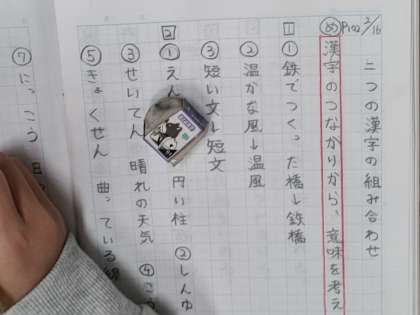 二つの漢字の組み合わせ
め P102 2/16
漢字のつながりから、意味を考え
1
① 鉄でつくった橋→鉄橋
② 温かな風→温風
③ 短い文→短文
2
① えん 円い柱 ② しんゆ
③ せいてん 晴れの天気 ④ こう
⑤ きょくせん 曲っている線
⑦ にっこう